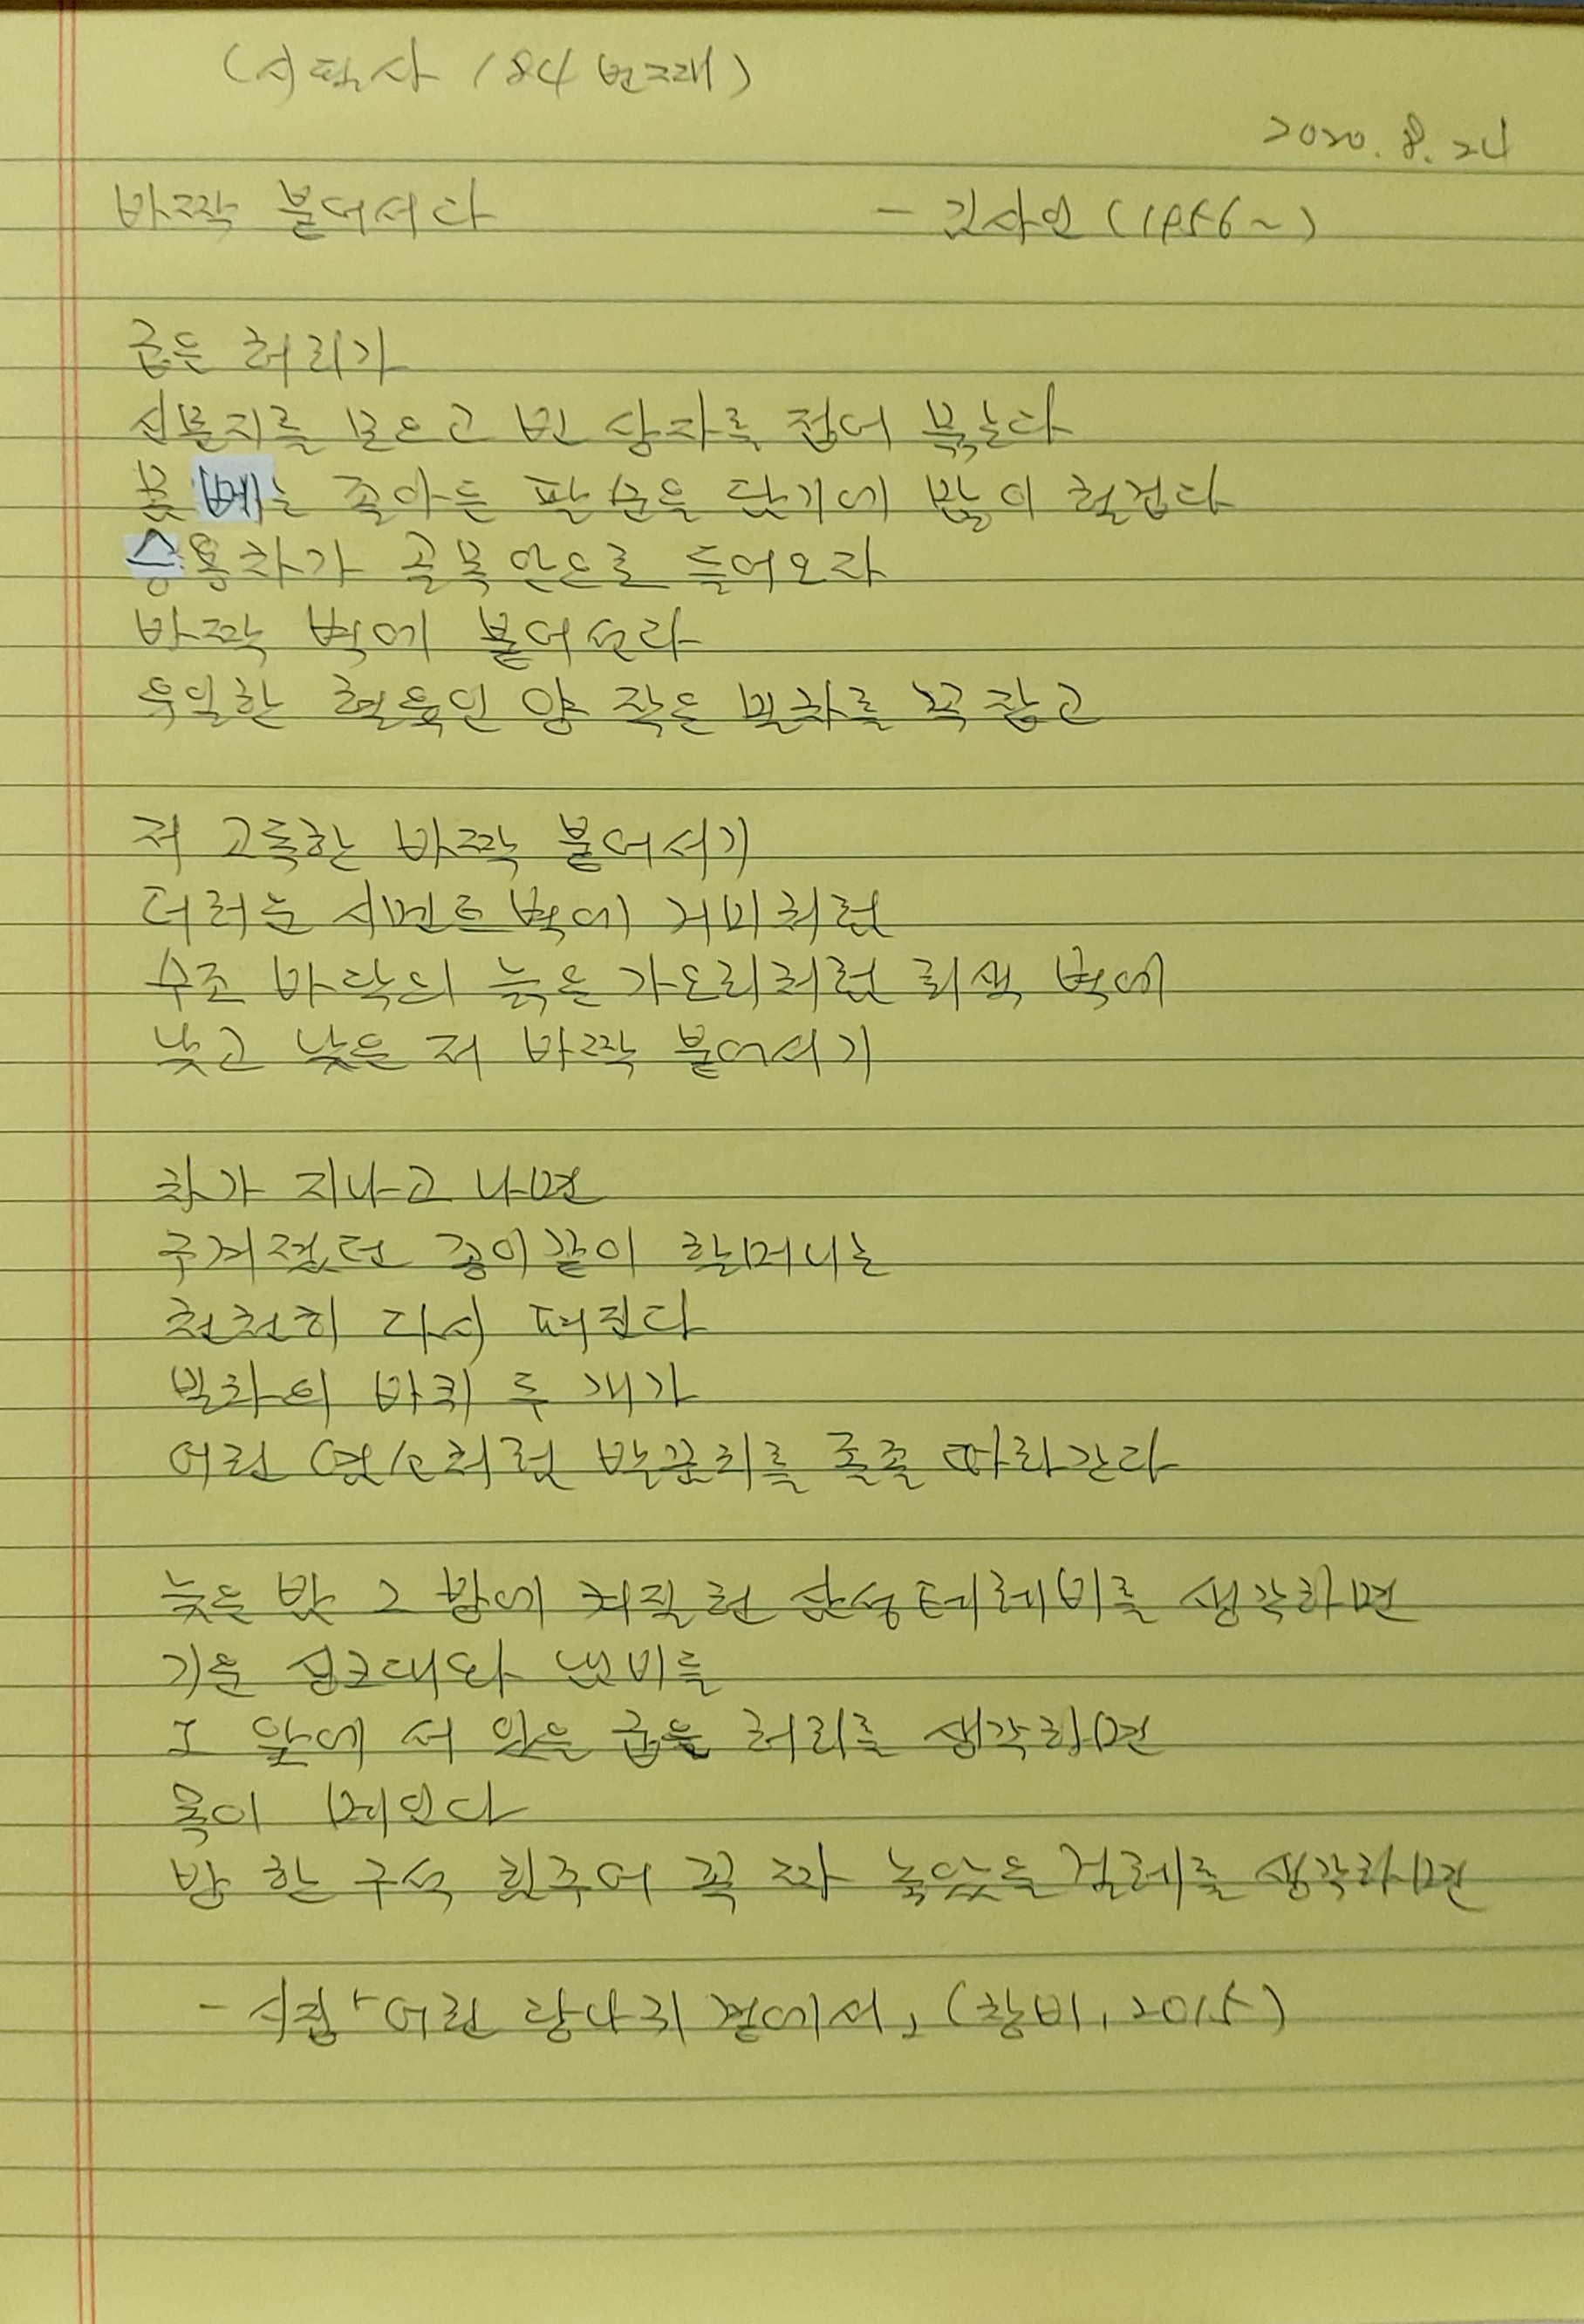 (시필사 184번째)
2020. 8. 24
바짝 붙어서다 - 김사인 (1956~)
굽은 허리가
신문지를 모으고 빈 상자를 접어 묶는다
몸빼는 졸아든 팔순을 담기에 많이 헐겁다
승용차가 골목 안으로 들어오자
바짝 벽에 붙어선다
유일한 혈육인 양 작은 밀차를 꼭 잡고
저 고독한 바짝 붙어서기
더러운 시멘트 벽에 거미처럼
수조 바닥의 늙은 가오리처럼 회색 벽에
낮고 낮은 저 바짝 붙어서기
차가 지나고 나면
구겨졌던 종이같이 할머니는
천천히 다시 펴진다
밀차의 바퀴 두 개가
어린 염소처럼 발꿈치를 졸졸 따라간다
늦은 밤 그 방에 켜질 헌 삼성테레비를 생각하면
기운 싱크대와 냄비를
그 앞에 서 있을 굽은 허리를 생각하면
목이 메인다
방 한 구석 힘주어 꼭 짜 놓았을 걸레를 생각하면
- 시집 「어린 당나귀 곁에서」 (창비, 2015)